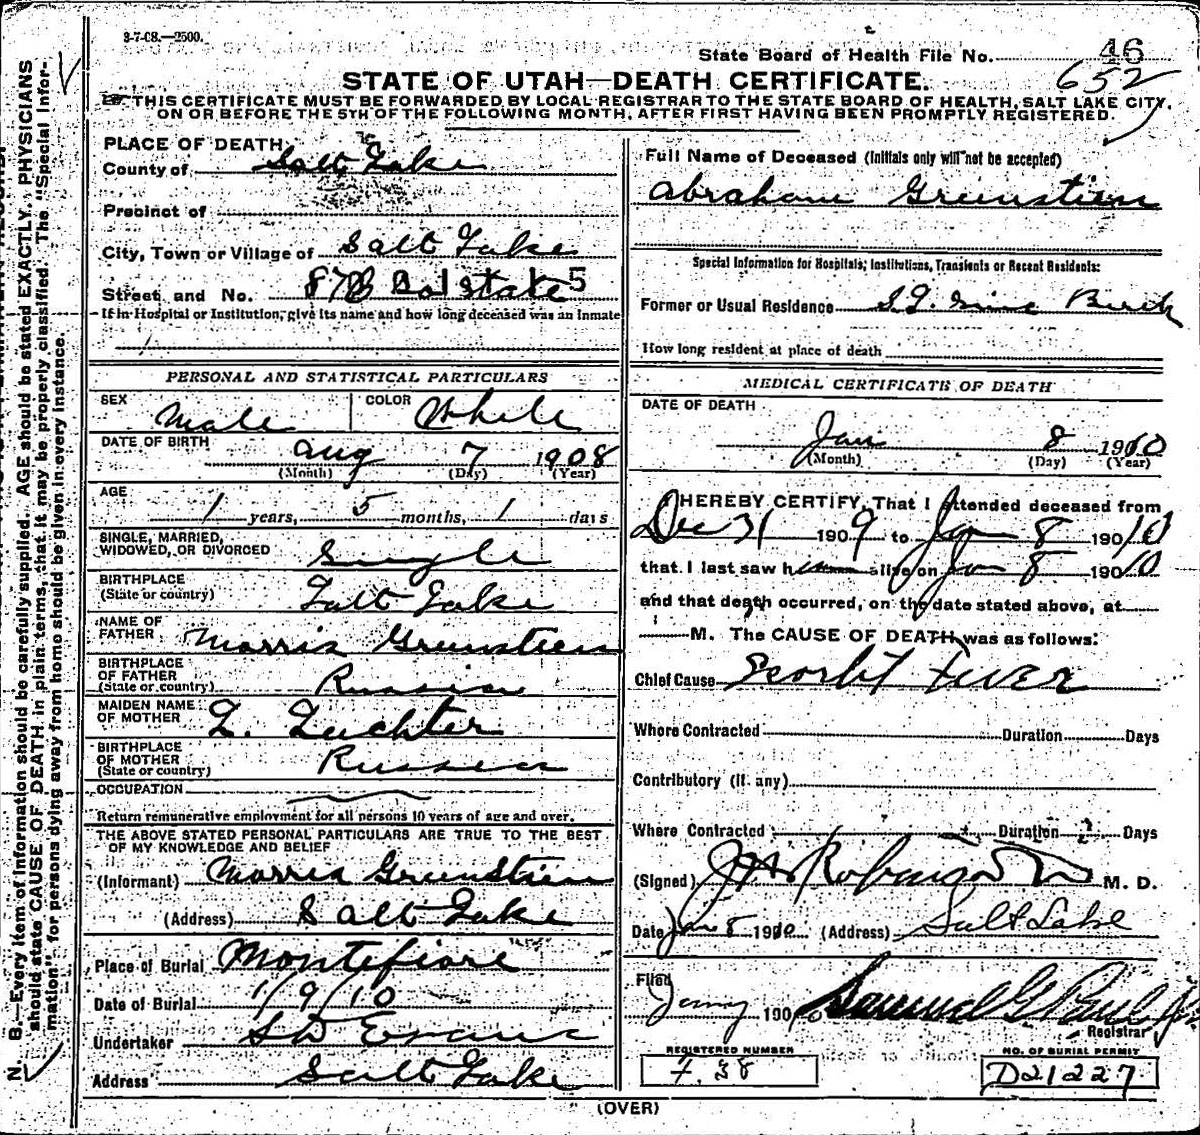 8-7-08.—2500.
State Board of Health File No. 46
652
STATE OF UTAH—DEATH CERTIFICATE.
THIS CERTIFICATE MUST BE FORWARDED BY LOCAL REGISTRAR TO THE STATE BOARD OF HEALTH, SALT LAKE CITY,
ON OR BEFORE THE 5TH OF THE FOLLOWING MONTH, AFTER FIRST HAVING BEEN PROMPTLY REGISTERED.
N. B.—Every item of information should be carefully supplied. AGE should be stated EXACTLY. PHYSICIANS
should state CAUSE OF DEATH in plain terms, that it may be properly classified. The "Special Infor-
mation" for persons dying away from home should be given in every instance.
PLACE OF DEATH
County of Salt Lake
Precinct of
City, Town or Village of Salt Lake
Street and No. State
If in Hospital or Institution, give its name and how long deceased was an inmate
PERSONAL AND STATISTICAL PARTICULARS
SEX Male COLOR White
DATE OF BIRTH Aug 7 1908
(Month) (Day) (Year)
AGE
1 years, 5 months, 1 days
SINGLE, MARRIED,
WIDOWED, OR DIVORCED Single
BIRTHPLACE
(State or country) Salt Lake
NAME OF
FATHER Morris Greenstien
BIRTHPLACE
OF FATHER
(State or country) Russia
MAIDEN NAME
OF MOTHER L. Luchter
BIRTHPLACE
OF MOTHER
(State or country) Russia
OCCUPATION
Return remunerative employment for all persons 10 years of age and over.
THE ABOVE STATED PERSONAL PARTICULARS ARE TRUE TO THE BEST
OF MY KNOWLEDGE AND BELIEF
(Informant) Morris Greenstien
(Address) Salt Lake
Place of Burial Montefiore
Date of Burial 1/9/10
Undertaker S D Evans
Address Salt Lake
Full Name of Deceased (Initials only will not be accepted)
Abraham Greenstien
Special Information for Hospitals, Institutions, Transients or Recent Residents:
Former or Usual Residence
How long resident at place of death
MEDICAL CERTIFICATE OF DEATH
DATE OF DEATH
Jan 8 1910
(Month) (Day) (Year)
I HEREBY CERTIFY, That I attended deceased from
Dec 31 1909 to Jan 8 1910
that I last saw him alive on Jan 8 1910
and that death occurred, on the date stated above, at
M. The CAUSE OF DEATH was as follows:
Chief Cause Scarlet Fever
Where Contracted Duration Days
Contributory (if any)
Where Contracted Duration Days
(Signed) M. D.
Date Jan 8 1910 (Address) Salt Lake
Filed
190 Samuel G. Paul
Registrar
REGISTERED NUMBER
F. 38
NO. OF BURIAL PERMIT
D21227
(OVER)